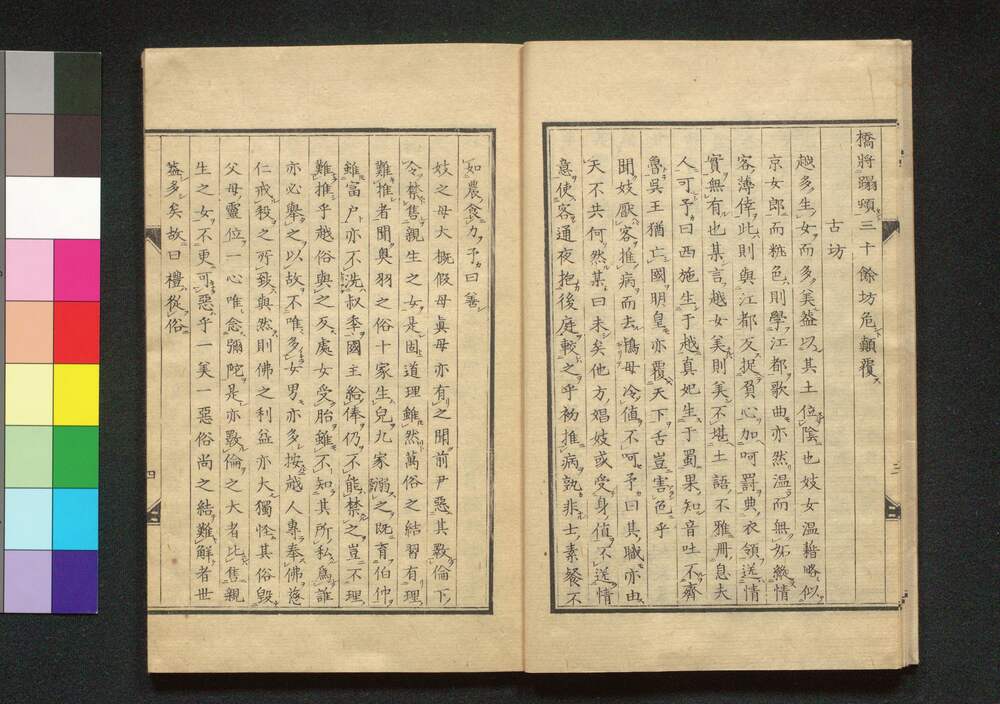 橋將蹋頌三十餘坊危顛覆
古坊
越多生女而多美蓋以其土位陰也妓女温藉略似
京女郎而粧色則學江都歌曲亦然温而無妬熱情
客薄倖此則與江都反捉負心加呵罰典衣領送情
實無有也某言越女美則美不堪土語不雅冊息夫
人可予曰西施生于越真妃生于蜀果知音吐不齊
魯吳王猶亡國明皇亦覆天下舌豈害色乎
聞妓厭客推病而去鴇母冷値不呵予曰其臟亦由
天不共何然某曰未矣他方娼妓或受身値不送情
意使客通夜抱後庭較之乎初推病孰非士素餐不
如農食力予曰善
妓之母大概假母眞母亦有之聞前尹惡其斁倫下
令禁售親生之女是固道理雖然萬俗之結習有理
難推者聞奧羽之俗十家生兒九家溺之既育伯仲
雖富戶亦不洗叔季國主給俸仍不能禁之豈不理
難推乎越俗與之反處女受胎雖不知其所私爲誰
亦必舉之以故不唯多女男亦多按越人專奉佛慈
仁戒殺之所致與然則佛之利益亦大獨怪其俗毀
父母靈位一心唯念彌陀是亦斁倫之大者比售親
生之女不更可惡乎一美一惡俗尚之結難解者世
益多矣故曰禮從俗
三
四